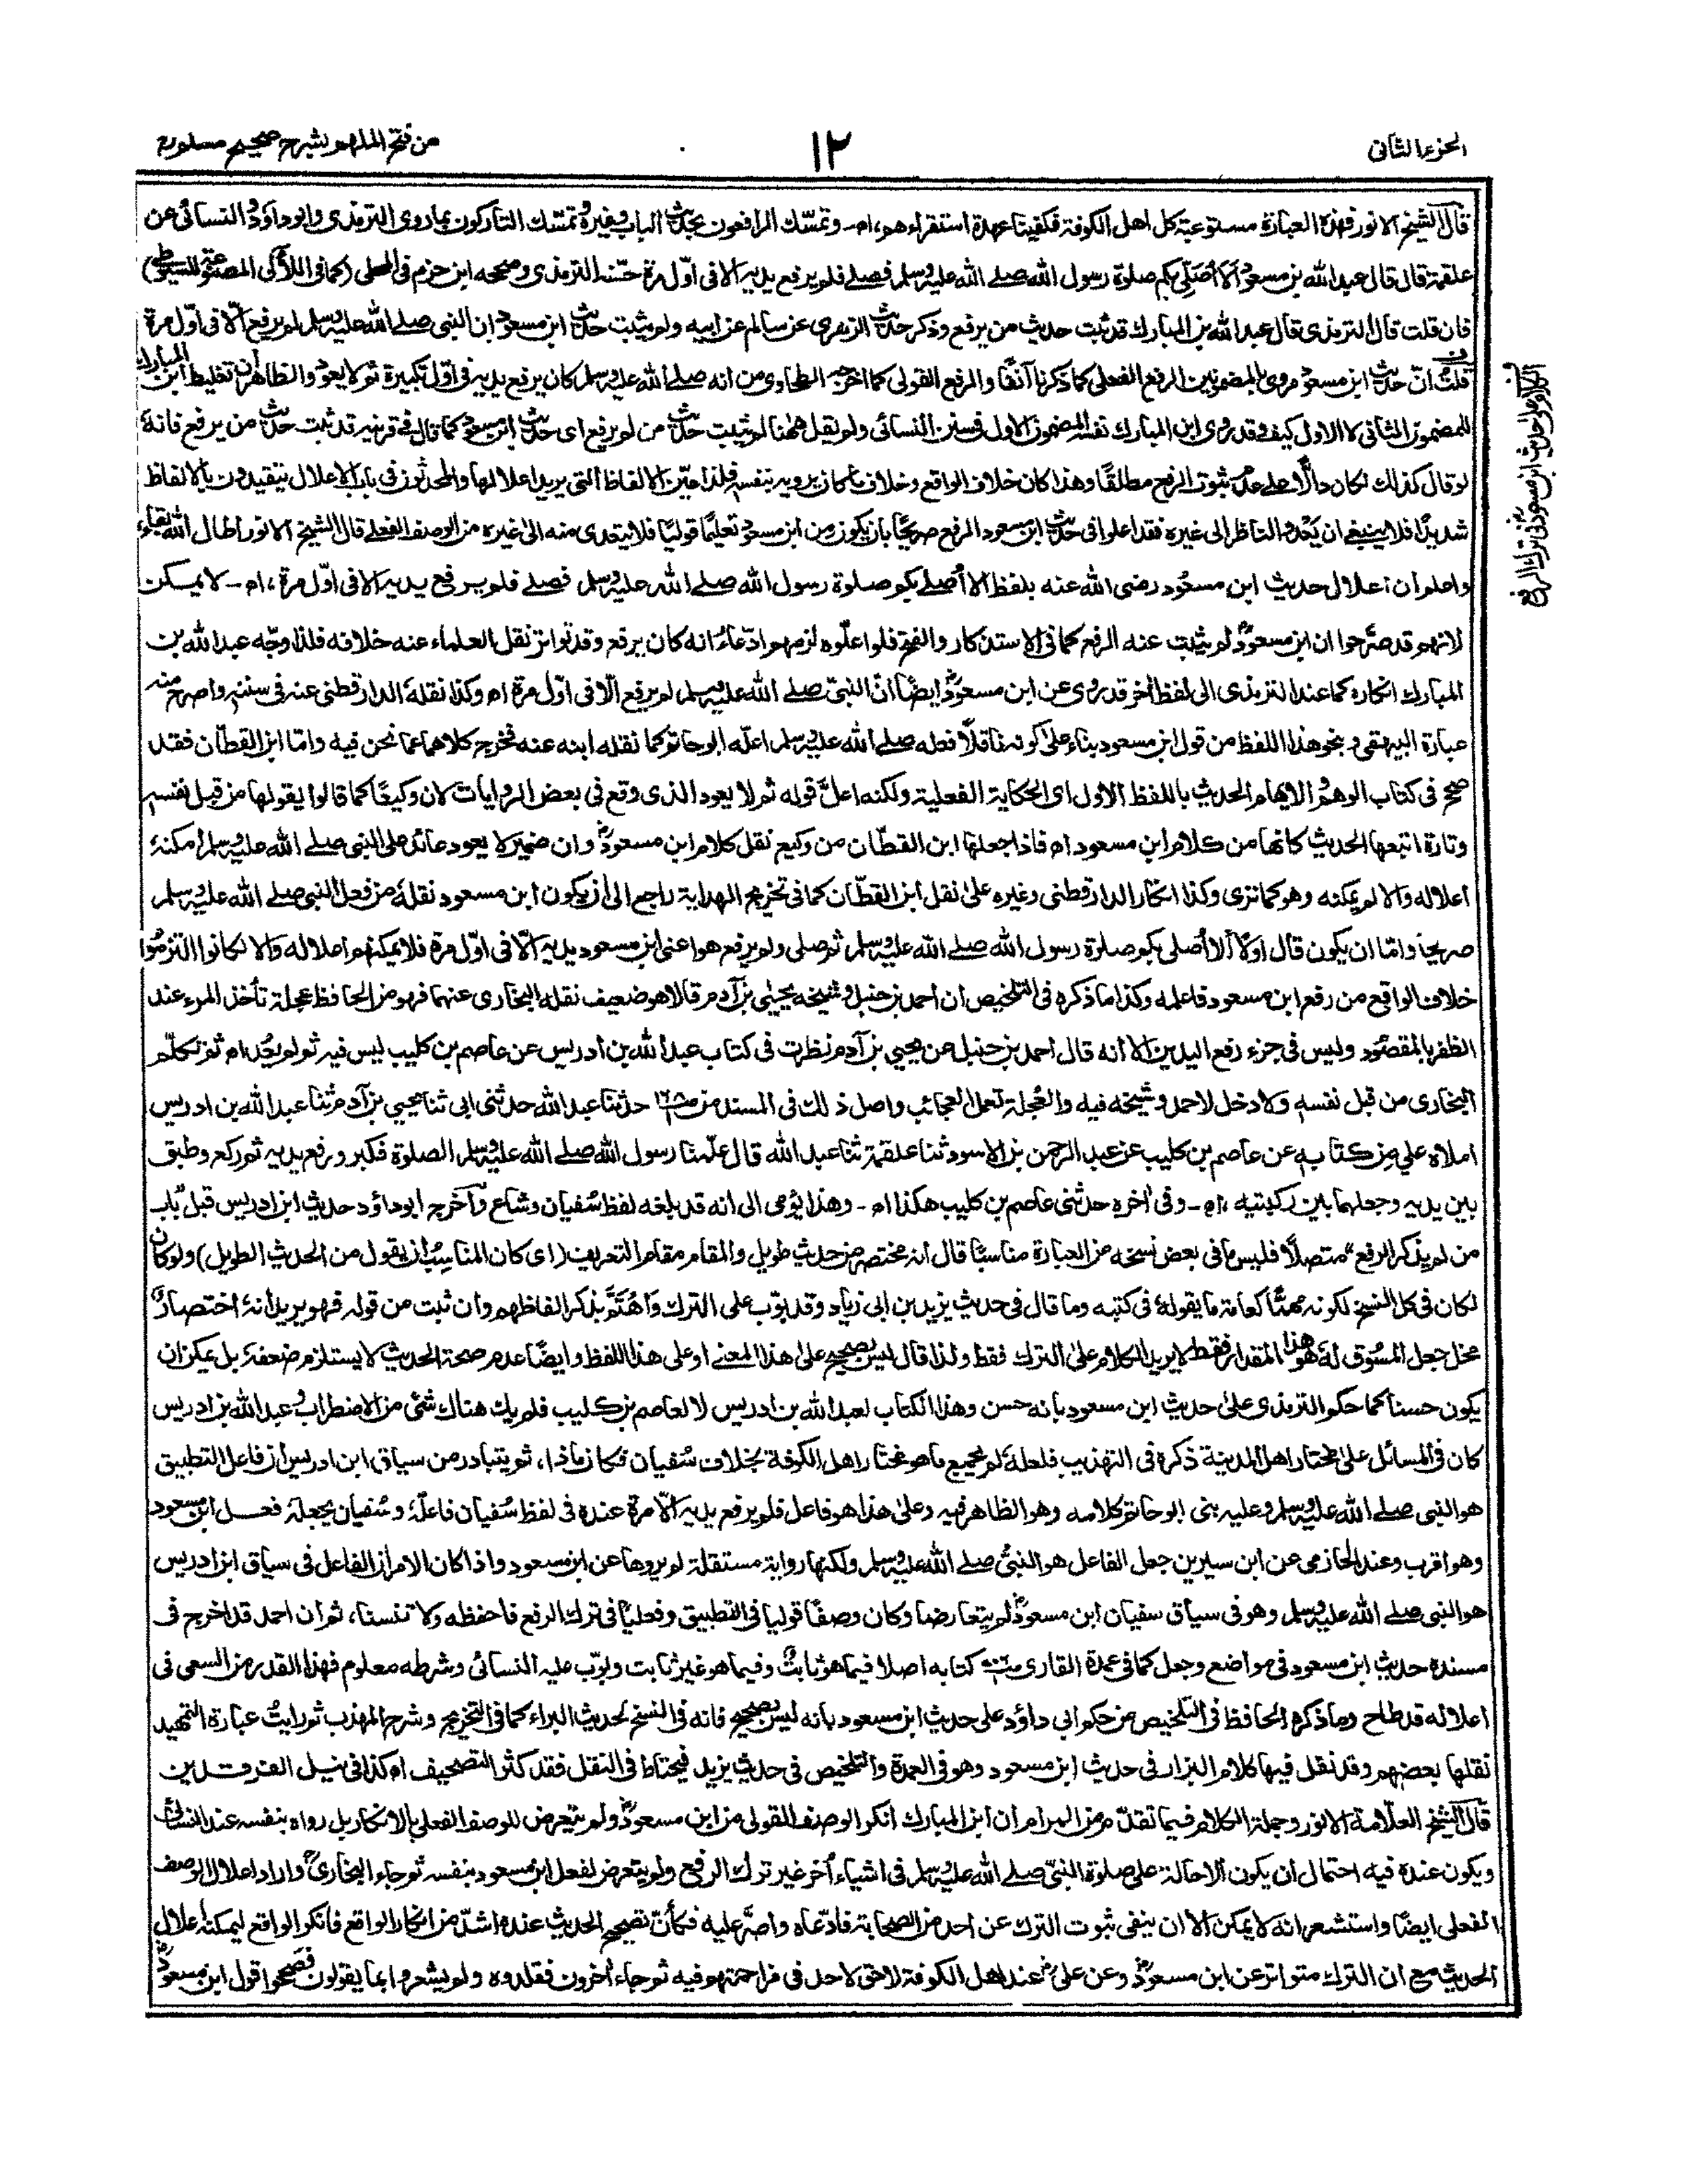 الجزء الثانى
١٢
من فتح الملهم بشرح صحيح مسلم
الكلام على حديث ابن مسعود فى ترك الرفع
قال الشيخ الانور فهذه العبارة مستوعبة كل اهل الكوفة فكفينا عهدة استقراءهم، اه- وتمسّك الرافعون بحديث الباب وغيره وتمسّك التاركون بما روى الترمذى وابوداؤد والنسائى عن
علقمة قال قال عبد الله بن مسعود الا اُصَلّى بكم صلوة رسول الله صلے الله عليه وسلم فصلے فلم يرفع يديه الا فى اوّل مرة حسّنه الترمذى وصححه ابن حزم فى المحلى (كما فى اللآلى المصنوعة للسيوطى)
فان قلت قال الترمذى قال عبد الله بن المبارك قد ثبت حديث من يرفع وذكر حديث الزهرى عن سالم عن ابيه ولم يثبت حديث ابن مسعود ان النبى صلے الله عليه وسلم لم يرفع الّا فى اوّل مرة
قلتُ انّ حديث ابن مسعود مروى بالمضمونين الرفع الفعلى كما ذكرنا آنفًا والرفع القولى كما اخرجه الطحاوى من انه صلے الله عليه وسلم كان يرفع يديه فى اوّل تكبيرة ثم لا يعود والظاهر ان تغليط ابن المبارك
للمضمون الثانى لا الاول كيف وقد روى ابن المبارك نفسه المضمون الاول فى سنن النسائى ولم يقل ههنا لم يثبت حديث من لم يرفع اى حديث ابن مسعود كما قال فى قرينه قد ثبت حديث من يرفع فانه
لو قال كذلك لكان دالًّا على عدم ثبوت الرفع مطلقًا وهذا كان خلاف الواقع وخلاف ما كان يرويه بنفسه فلذا عيّن الالفاظ التى يريد اعلالها والمحدثون فى باب الاعلال يتقيدون بالالفاظ
شديدًا فلا ينبغى ان يَعْدُوَ الناظر الى غيره فقد اعلوا فى حديث ابن مسعود الرفع صريحًا بان يكون من ابن مسعود تعليمًا قوليًا فلا يتعدى منه الى غيره من الوصف الفعلے قال الشيخ الانور اطال الله بقاءه
واعلم ان اعلال حديث ابن مسعُود رضى الله عنه بلفظ الا اُصلے بكم صلوة رسول الله صلے الله عليه وسلم فصلے فلم يرفع يديه الا فى اوّل مرة، اه- لا يمكن
لانهم قد صرّحوا ان ابن مسعودؓ لم يثبت عنه الرفع كما فى الاستذكار والفتح فلو اعلّوه لزمهم ادّعاء انه كان يرفع وقد تواتر نقل العلماء عنه خلافه فلذا وجّه عبد الله بن
المبارك انكاره كما عند الترمذى الى لفظ اٰخر قد روى عن ابن مسعودؓ ايضًا انّ النبىّ صلے الله عليه وسلم لم يرفع الّا فى اوّل مرة اه وكذا نقله الدارقطنى عنه فى سننه واصرح منه
عبارة البيهقى وبنحو هذا اللفظ من قول ابن مسعود بناء علىٰ كونه ناقلًا فعله صلے الله عليه وسلم اعلّه ابو حاتم كما نقله ابنه عنه فخرج كلاهما عما نحن فيه واما ابن القطّان فقد
صحح فى كتاب الوهم والايهام الحديث باللفظ الاول اى الحكاية الفعلية ولكنه اعلّ قوله ثم لا يعود الذى وقع فى بعض الروايات لان وكيعًا كما قالوا يقولها من قبل نفسه
وتارة اتبعها الحديث كانها من كلام ابن مسعود اه فاذا جعلها ابن القطّان من وكيع نقل كلام ابن مسعودؓ وان ضمير لا يعود عائد على النبى صلے الله عليه وسلم امكنه
اعلاله والا لم يمكنه وهو كما ترى وكذا انكار الدارقطنى وغيره علىٰ نقل ابن القطّان كما فى تخريج الهداية راجع الى ان يكون ابن مسعود نقله من فعل النبى صلے الله عليه وسلم
صريحًا واما ان يكون قال اولًا ألا اُصلى بكم صلوة رسول الله صلے الله عليه وسلم ثم صلى ولم يرفع هو اعنى ابن مسعود يديه الّا فى اوّل مرة فلا يمكنهم اعلاله والا لكانوا التزموا
خلاف الواقع من رفع ابن مسعود فاعلمه وكذا ما ذكره فى التلخيص ان احمد بن حنبل وشيخه يحيٰى بن آدم قالا هو ضعيف نقله البخارى عنهما فهو من الحافظ عجلة تأخذ المرء عند
الظفر بالمقصُود وليس فى جزء رفع اليدين الا انه قال احمد بن حنبل عن يحيى بن آدم نظرت فى كتاب عبد الله بن ادريس عن عاصم بن كليب ليس فيه ثم لم يعُد اه ثم تكلّم
البخارى من قبل نفسه ولا دخل لاحمد وشيخه فيه والعُجلة تعمل العجائب واصل ذلك فى المسند من حدثنا عبد الله حدثنى ابى ثنا يحيى بن آدم ثنا عبد الله بن ادريس
املاه علي من كتابه عن عاصم بن كليب عن عبد الرحمن بن الاسود ثنا علقمة ثنا عبد الله قال علّمنا رسول الله صلے الله عليه وسلم الصلوة فكبر ورفع يديه ثم ركع وطبق
بين يديه وجعلهما بين ركبتيه ، اه- وفى اٰخره حدثنى عاصم بن كليب هكذا اه- وهذا يؤمى الى انه قد بلغه لفظ سُفيان وشاع وآخرج ابوداؤد حديث ابن ادريس قبل "باب
من لم يذكر الرفع" متصلًا فليس ما فى بعض نسخه من العبارة مناسبًا قال انه مختصر من حديث طويل والمقام مقام التعريف (اى كان المناسبُ ان يقول من الحديث الطويل) ولو كان
لكان فى كل النسخ لكونه مهمًّا كعامة ما يقولهُ فى كتبه وما قال فى حديث يزيد بن ابى زياد وقد بوّب على الترك وَاهْتَمَّ بذكر الفاظهم وان ثبت من قوله فهو يريد انهُ اختصارٌ
مخل جعل المسُوق له هو هذا المقدار فقط لا يريد الكلام على الترك فقط ولذا قال ليس بصحيح علىٰ هذا المعنے او على هذا اللفظ وايضًا عدم صحة الحديث لا يستلزم ضعفه بل يمكن ان
يكون حسنًا كما حكم الترمذى علىٰ حديث ابن مسعود بانه حسن وهذا الكتاب لعبد الله بن ادريس لا لعاصم بن كليب فلم يك هناك شئ من الاضطراب وعبد الله بن ادريس
كان فى المسائل علىٰ مختار اهل المدينة ذكره فى التهذيب فلعله لم يجمع ما هو مختار اهل الكوفة بخلاف سُفيان فكان ماذا، ثم يتبادر من سياق ابن ادريس ان فاعل التطبيق
هو النبى صلے الله عليه وسلم وعليه بنى ابو حاتم كلامه وهو الظاهر فيه وعلىٰ هذا هو فاعل فلم يرفع يديه الّا مرة عنده فى لفظ سُفيان فاعلّه وسُفيان يجعله فعل ابن مسعود
وهو اقرب وعند الحازمى عن ابن سيرين جعل الفاعل هو النبىُّ صلے الله عليه وسلم ولكنها رواية مستقلة لم يروها عن ابن مسعود واذا كان الامر ان الفاعل فى سياق ابن ادريس
هو النبى صلے الله عليه وسلم وهو فى سياق سفيان ابن مسعودؓ لم يتعارضا وكان وصفًا قوليا فى التطبيق وفعليًا فى ترك الرفع فاحفظه ولا تنسنا، ثم ان احمد قد اخرج فى
مسنده حديث ابن مسعود فى مواضع وجعل كما فى عمدة القارى كتابه اصلا فيما هو ثابتٌ وفيما هو غير ثابت وبوّب عليه النسائى وشرطه معلوم فهذا القدر من السعى فى
اعلاله قد طاح وما ذكره الحافظ فى التلخيص من حكم ابى داؤد على حديث ابن مسعود بانه ليس بصحيح فانه فى النسخ لحديث البراء كما فى التخريج وشرح المهذب ثم رايتُ عبارة التمهيد
نقلها بعضهم وقد نقل فيها كلام البزار فى حديث ابن مسعود وهو فى العمدة والتلخيص فى حديث يزيد فيحتاط فى النقل فقد كثر التصحيف اه كذا فى نيل الفرقدين
قال الشيخ العلّامة الانور وجملة الكلام فيما تقدّم من المرام ان ابن المبارك انكر الوصف القولى من ابن مسعودؓ ولم يتعرض للوصف الفعلى بالانكار بل رواه بنفسه عند النسائى
ويكون عنده فيه احتمال ان يكون الاحالة على صلوة النبىّ صلے الله عليه وسلم فى اشياء اُخر غير ترك الرفع ولم يتعرض لفعل ابن مسعود بنفسه ثم جاء البخارىؒ واراد اعلال الوصف
الفعلى ايضًا واستشعر انه لا يمكن الا ان ينفى ثبوت الترك عن احد من الصحابة فادّعاه واصرّ عليه فكأنّ تصحيح الحديث عنده اشدّ من انكار الواقع فانكر الواقع ليمكنه اعلال
الحديث مع ان الترك متواتر عن ابن مسعودؓ وعن علىؓ عند اهل الكوفة لا حق لاحد فى مزاحمتهم فيه ثم جاء اٰخرون فقلدوه ولم يشعروا بما يقولون فصححوا قول ابن مسعودؓ